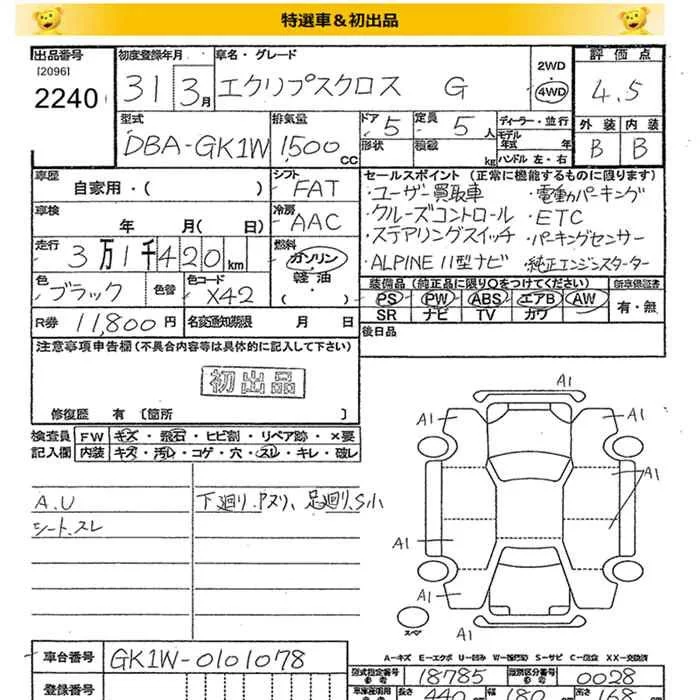 特選車＆初出品
出品番号 初度登録年月 車名・グレード 2WD 評価点
[2096] 2240 31 3月 エクリプスクロス G 4WD 4.5
型式 排気量 ドア 定員 ディーラー・並行 外装 内装
DBA-GK1W 1,500cc 5 5人 モデル年式 年 B B
形状 積載 kg ハンドル 左・右
車歴 シフト セールスポイント (正常に機能するものに限ります)
自家用・( ) FAT ・ユーザー買取車 ・電動パーキング
車検 冷房 ・クルーズコントロール ・ETC
年 月( 日) AAC ・ステアリングスイッチ ・パーキングセンサー
走行 3万1千420km 燃料 ガソリン ・ALPINE 11型ナビ ・純正エンジンスターター
軽油・
色 ブラック 色替 色コード X42 装備品 (純正品に限り○をつけてください) 新車保証書
PS PW ABS エアB AW 有・無
R券 11,800円 名変通知期限 月 日 SR ナビ TV カワ
後日品
注意事項申告欄 (不具合内容等は具体的に記入して下さい)
初出品
修復歴 有 [箇所 ]
検査員 FW キズ・飛石・ヒビ割・リペア跡・×要
記入欄 内装 キズ・汚レ・コゲ・穴・スレ・キレ・破レ
A.U 下廻り.Pヌリ、足廻り.S小
シート.スレ
A1
A1 A1
A1
A1
A1
A1
スペア
A-キズ E-エクボ U-凹み W-補修跡 S-サビ C-腐蝕 XX-交換済
車台番号 GK1W-0101078
型式指定番号 18785 類別区分番号 0028
登録番号
長さ 440 幅 180 高さ 168